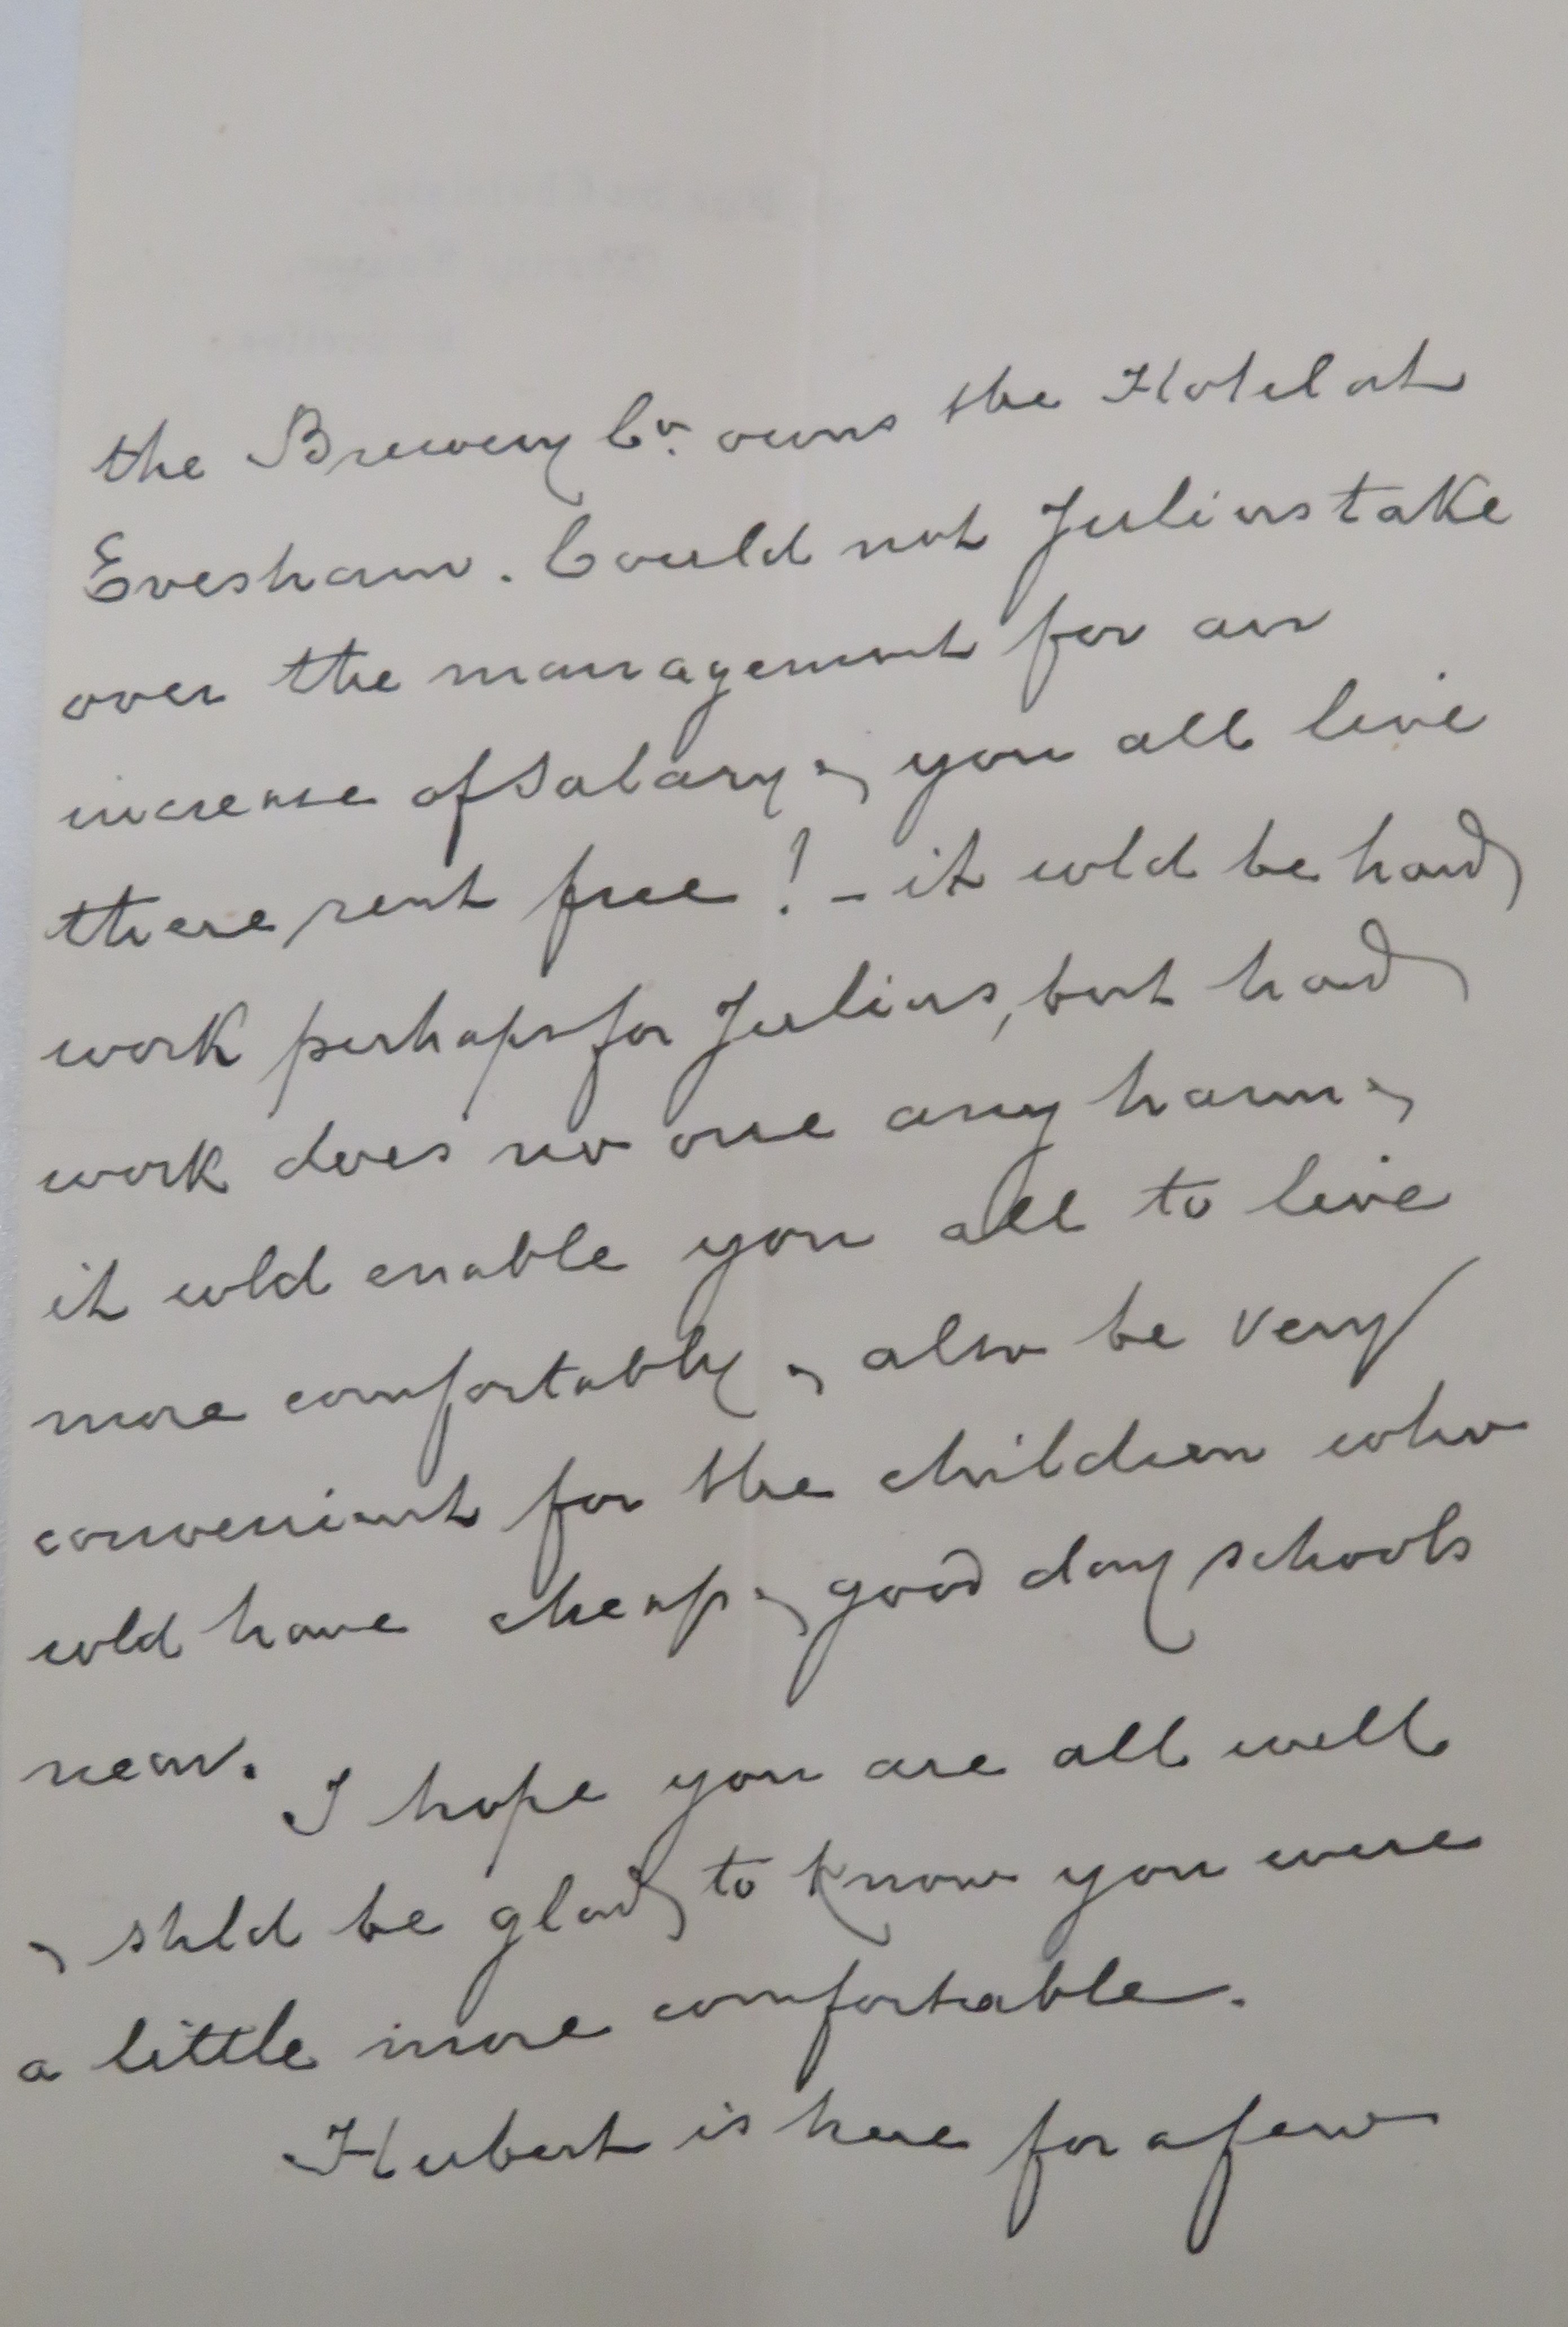 the Brewery Co. owns the Hotel at
Evesham. Could not Julius take
over the management for an
increase of salary & you all live
there rent free! - it wld be hard
work perhaps for Julius, but hard
work does no one any harm &
it wld enable you all to live
more comfortably & also be very
convenient for the children who
wld have cheap & good day schools
near. I hope you are all well
& shld be glad to know you were
a little more comfortable.
Hubert is here for a few